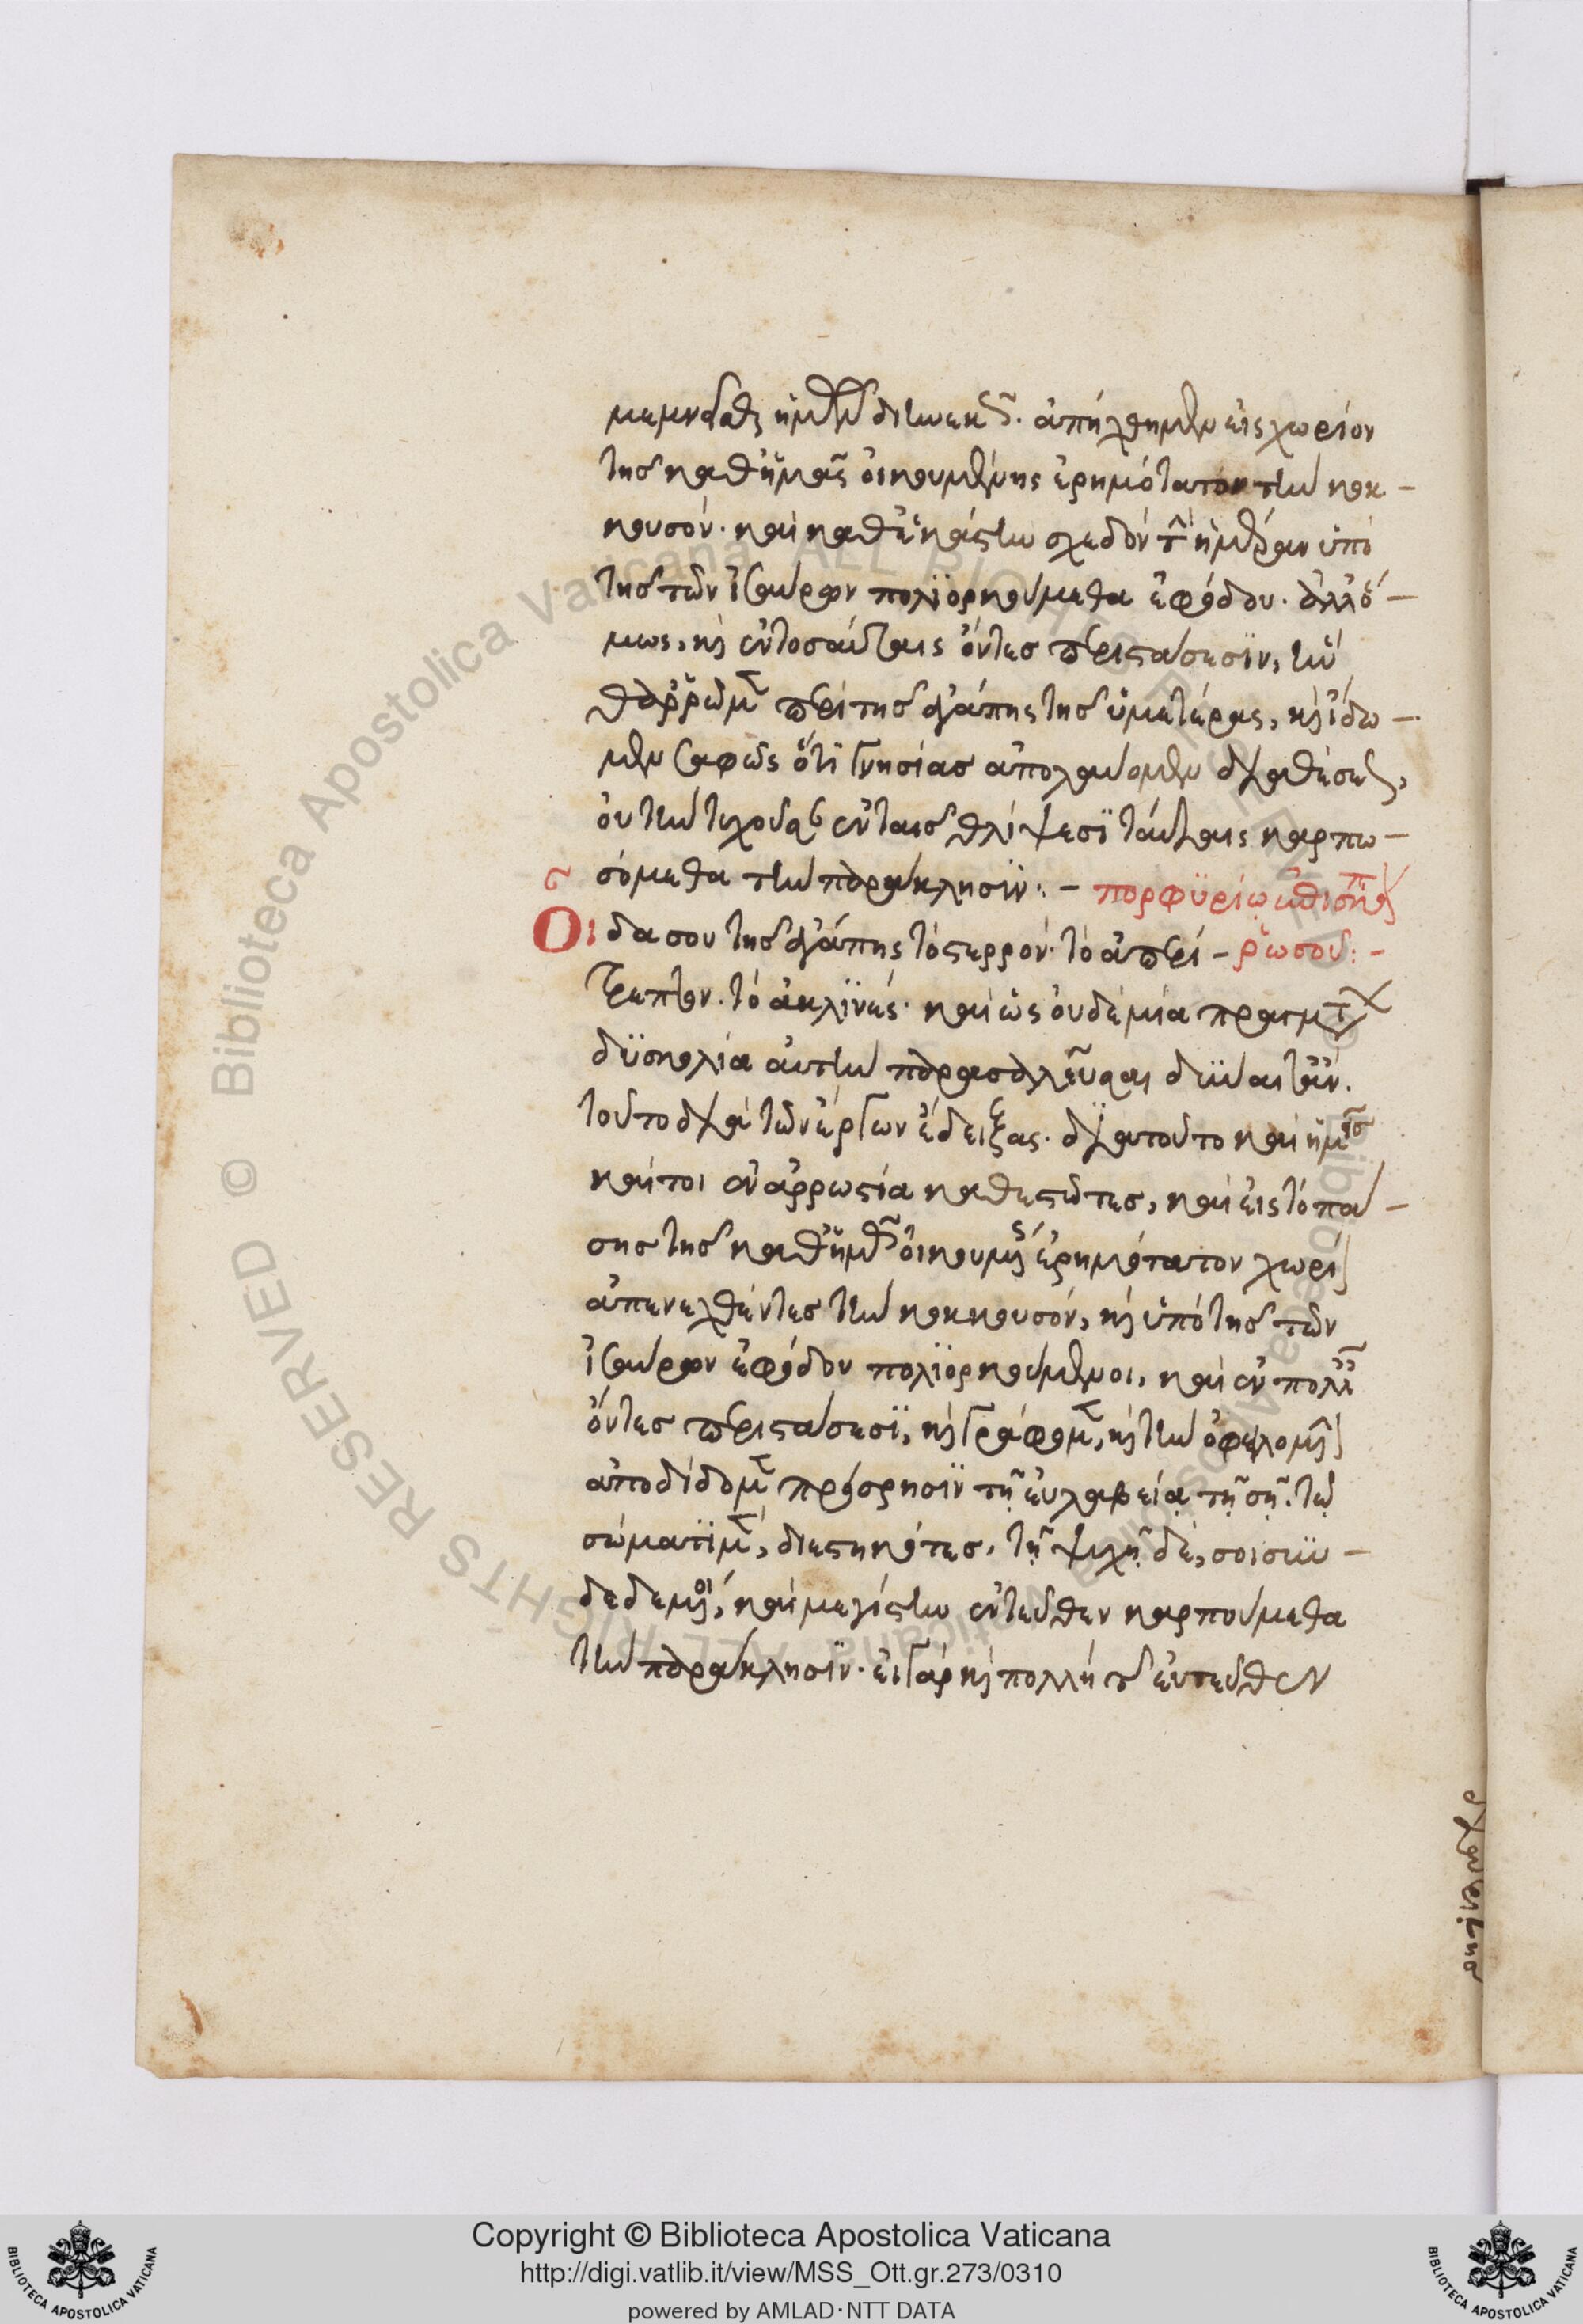 μεμνῆσθαι ἡμῶν διηνεκῶς. ἀπήχθημεν εἰς χωρίον
τῆς καθ' ἡμᾶς οἰκουμένης ἐρημότατον τὴν κοκ-
κουσόν. καὶ καθ' ἑκάστην σχεδὸν τὴν ἡμέραν ὑπὸ
τῆς τῶν ἰσαύρων πολιορκούμεθα ἐφόδου. ἀλλ' ὅ-
μως, καὶ ἐν τοσαύταις ὄντες περιστάσεσιν, ἂν
θαρρῶμεν περὶ τῆς ἀγάπης τῆς ὑμετέρας, καὶ ἴδω-
μεν σαφῶς ὅτι γνησίας ἀπολαύομεν διαθέσεως,
οὐ τὴν τυχοῦσαν ἐν ταῖς θλίψεσι ταύταις καρπω-
σόμεθα τὴν παράκλησιν: - πορφυρίῳ ἐπισκόπῳ
Οἶδα σου τῆς ἀγάπης τὸ στερρόν. τὸ ἀπερί- ῥώσου: -
τρεπτον. τὸ ἀκλινές. καὶ ὡς οὐδεμία πραγμάτων
δυσκολία αὐτὴν παρασαλεῦσαι δύναιτ' ἄν.
τοῦτο διὰ τῶν ἔργων ἔδειξας. διὰ τοῦτο καὶ ἡμεῖς
καίτοι ἐν ἀρρωστία καθεστῶτες, καὶ εἰς τὸ πά-
σης τῆς καθ' ἡμᾶς οἰκουμένης ἐρημότατον χωρίον
ἀπενεχθέντες τὴν κοκκουσόν, καὶ ὑπὸ τῆς τῶν
ἰσαύρων ἐφόδου πολιορκούμενοι, καὶ ἐν πολλαῖς
ὄντες περιστάσεσι, καὶ γράφομεν, καὶ τὴν ὀφειλομένην
ἀποδίδομεν πρόσρησιν τῇ εὐλαβείᾳ τῇ σῇ. τῷ
σώματι μὲν, διεστηκότες. τῇ ψυχῇ δέ, σοι συν-
δεδεμένοι, καὶ μεγίστην ἐντεῦθεν καρπούμεθα
τὴν παράκλησιν. εἰ γὰρ καὶ πολλὴ τῶν ἐντεῦθεν
Copyright © Biblioteca Apostolica Vaticana
http://digi.vatlib.it/view/MSS_Ott.gr.273/0310
powered by AMLAD·NTT DATA